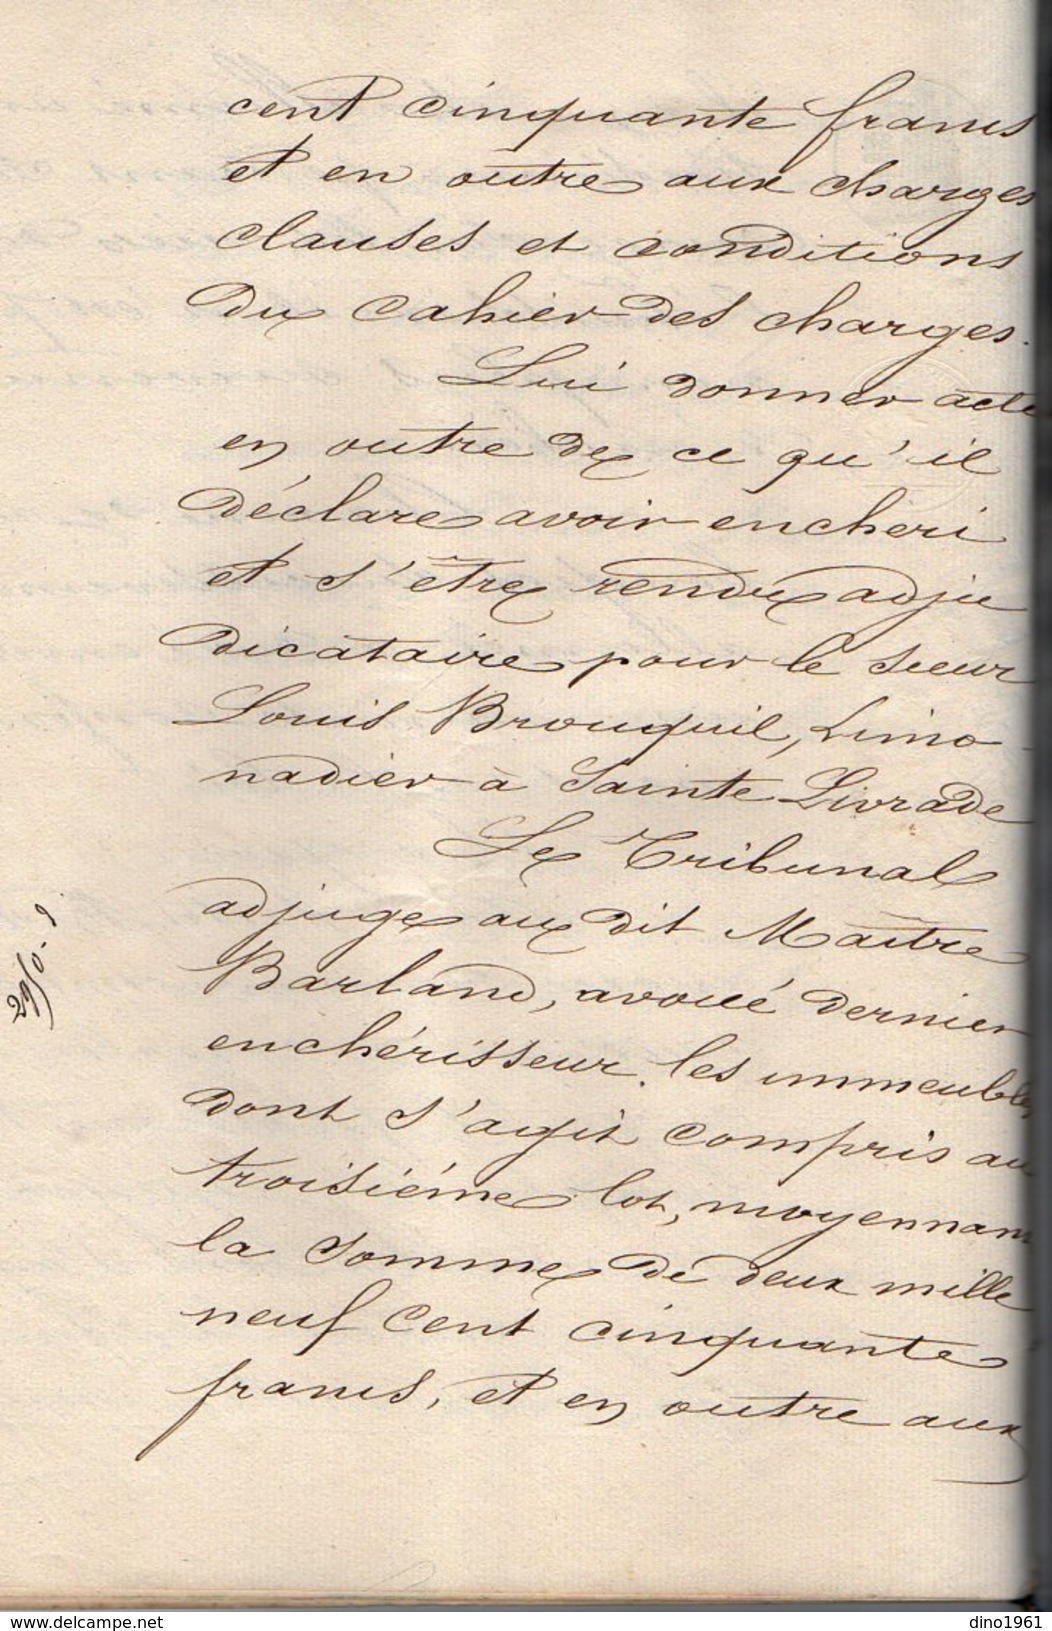 cent cinquante francs
et en outre aux charges
clauses et conditions
du cahier des charges.
Lui donner acte
en outre de ce qu'il
déclare avoir encheri
et s'être rendu adju
dicataire pour le sieur
Louis Brouquil, Limo-
nadier à Sainte Livrade
Le Tribunal
adjuge au dit Maître
Barland, avoué dernier
enchérisseur. les immeubles
dont s'agit compris au
troisiéme lot, moyennant
la somme de deux mille
neuf cent cinquante
francs, et en outre aux
2950.
https://www.delcampe.net
dino1961